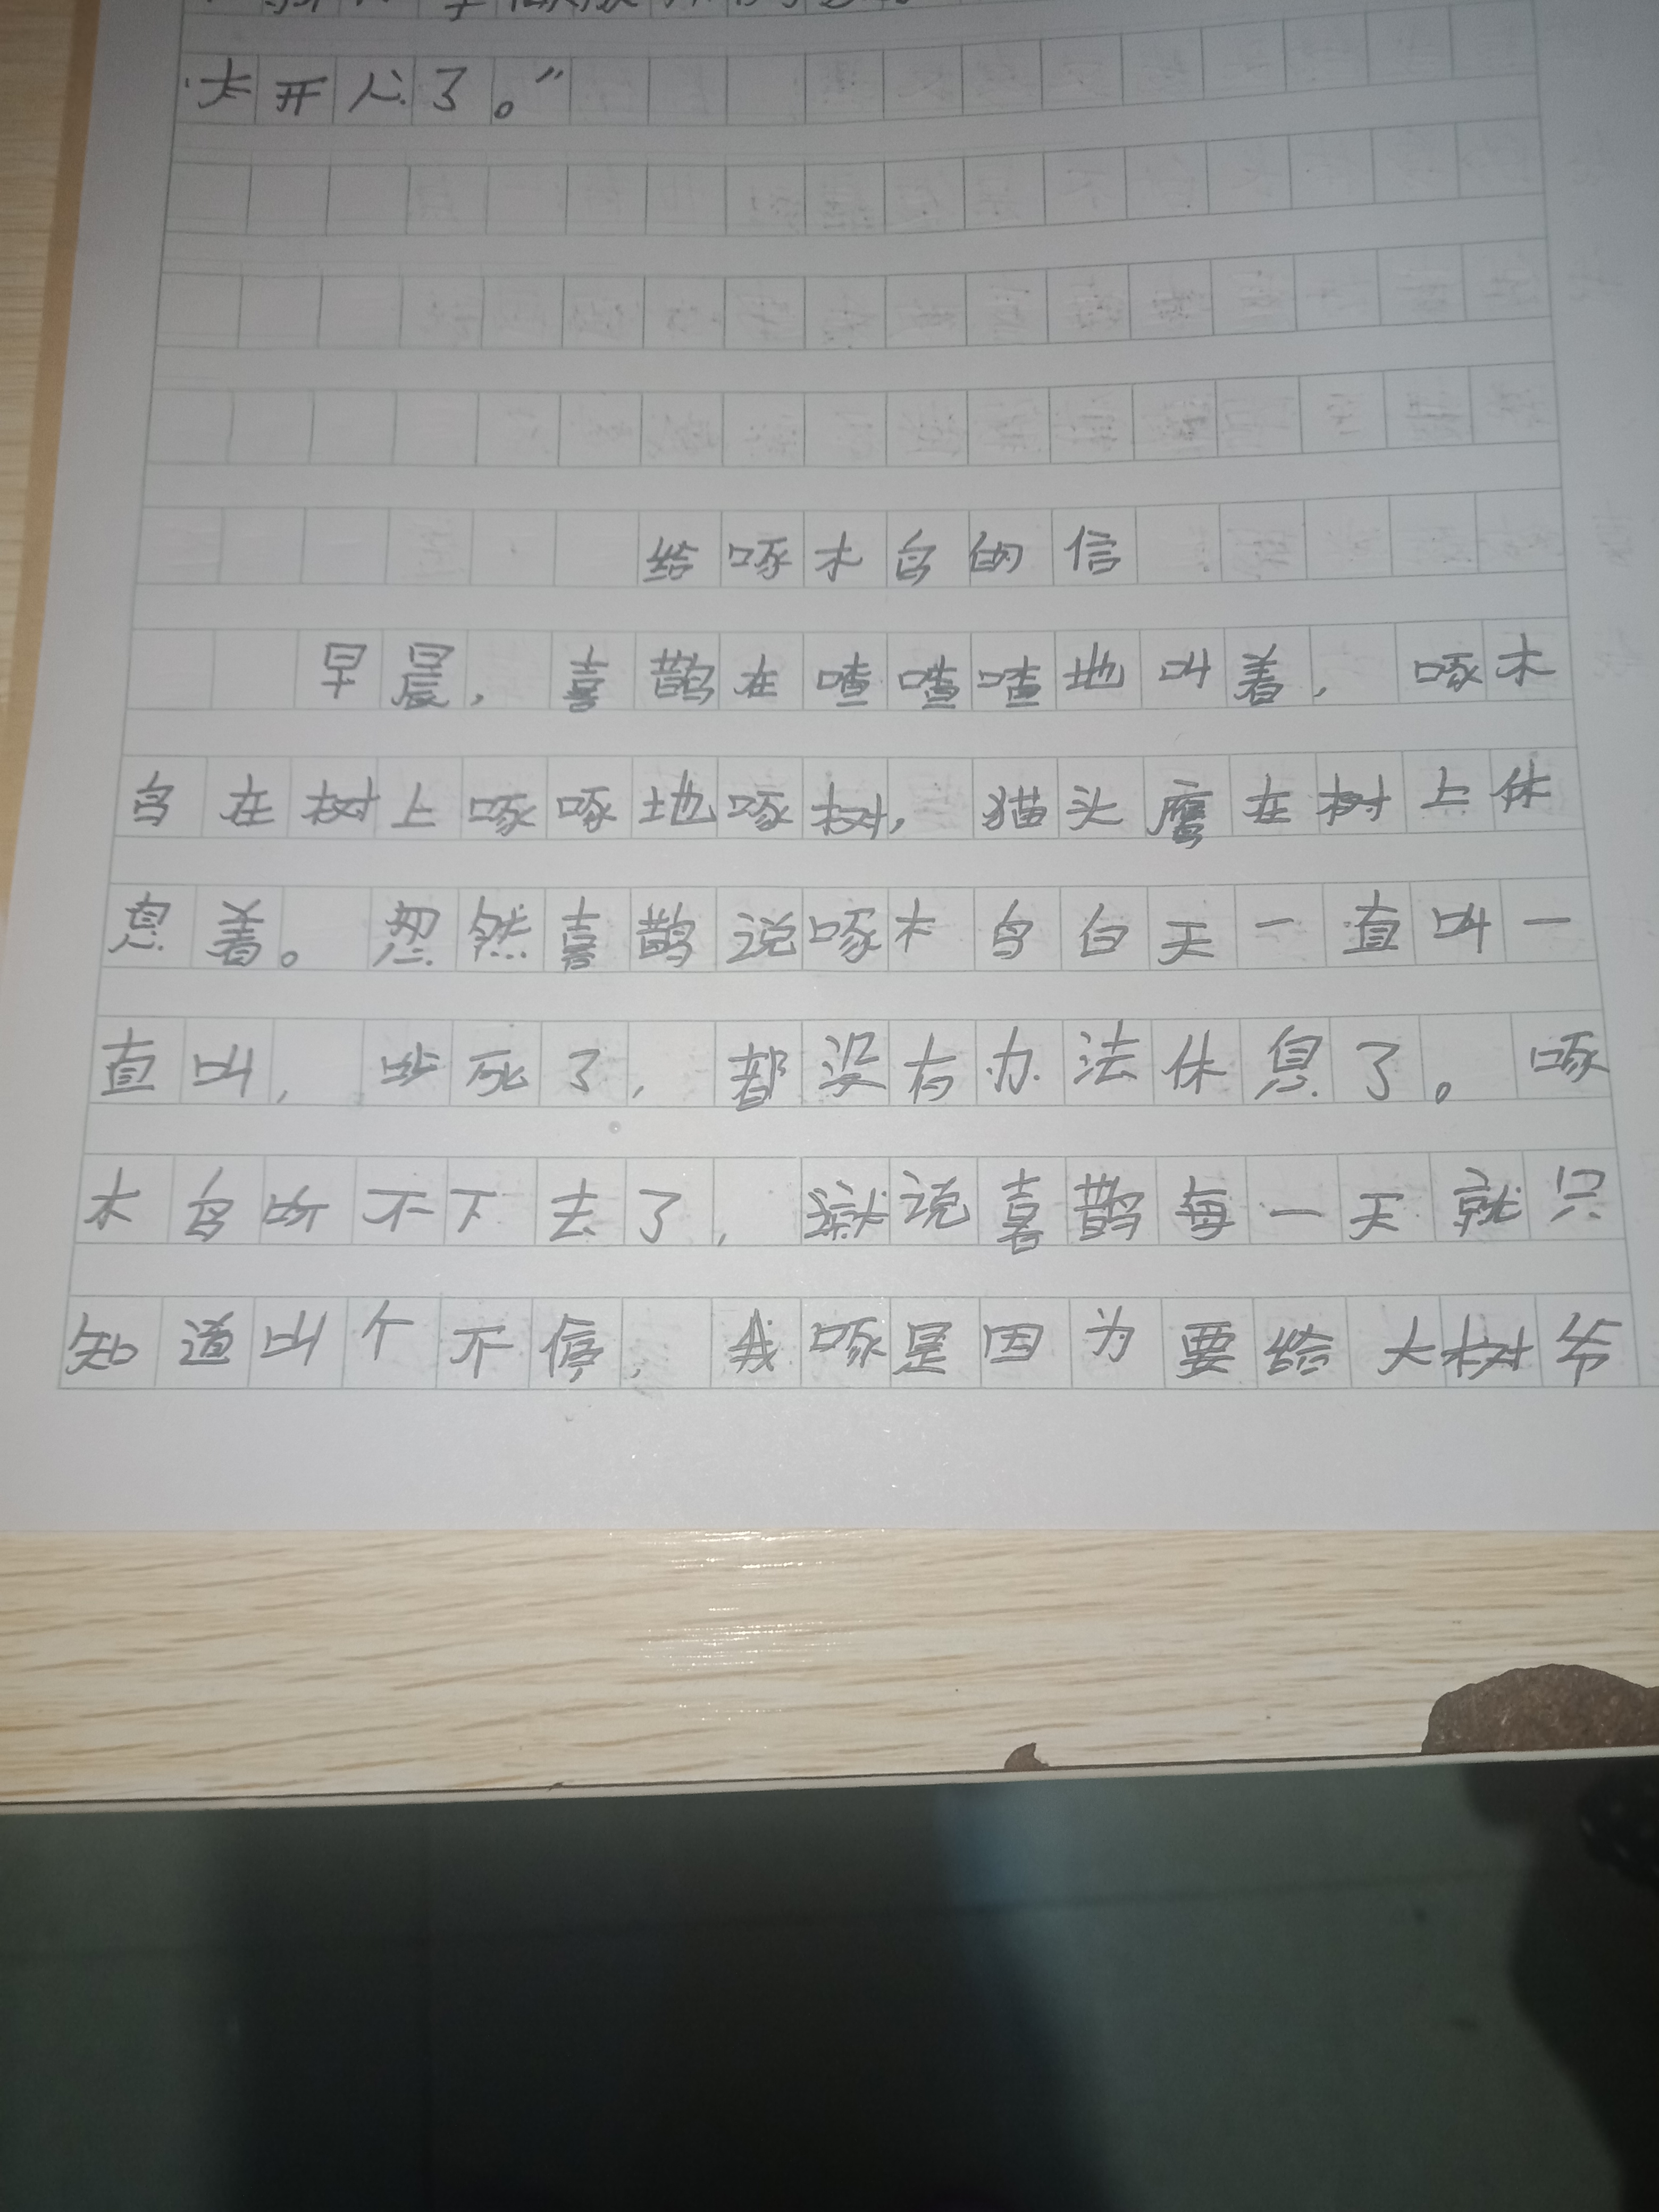 太开心了。”
给啄木鸟的信
早晨，喜鹊在喳喳喳地叫着，啄木
鸟在树上啄啄地啄树，猫头鹰在树上休
息着。忽然喜鹊说啄木鸟白天一直叫一
直叫，吵死了，都没有办法休息了。啄
木鸟听不下去了，就说喜鹊每一天就只
知道叫个不停，我啄是因为要给大树爷